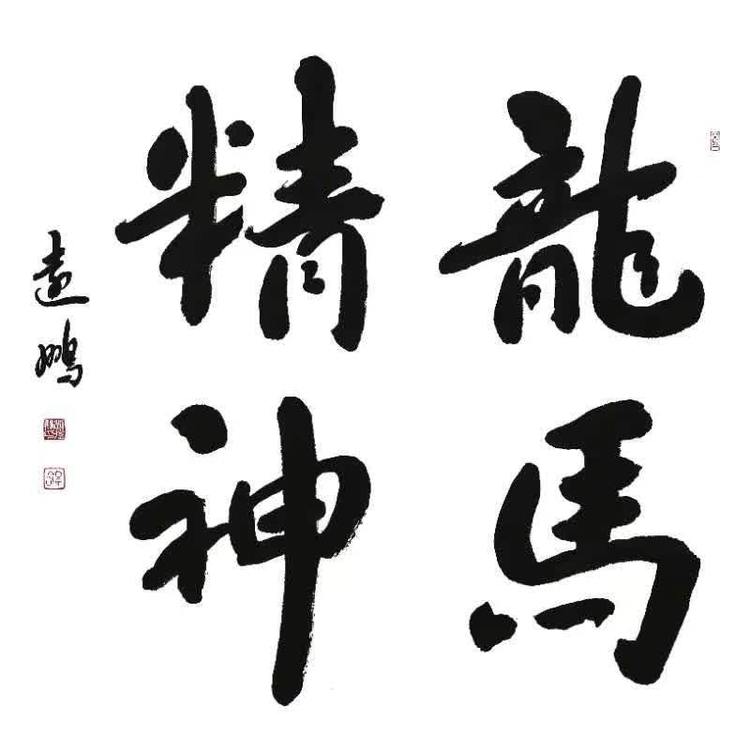 龍馬
精神
遠鵬